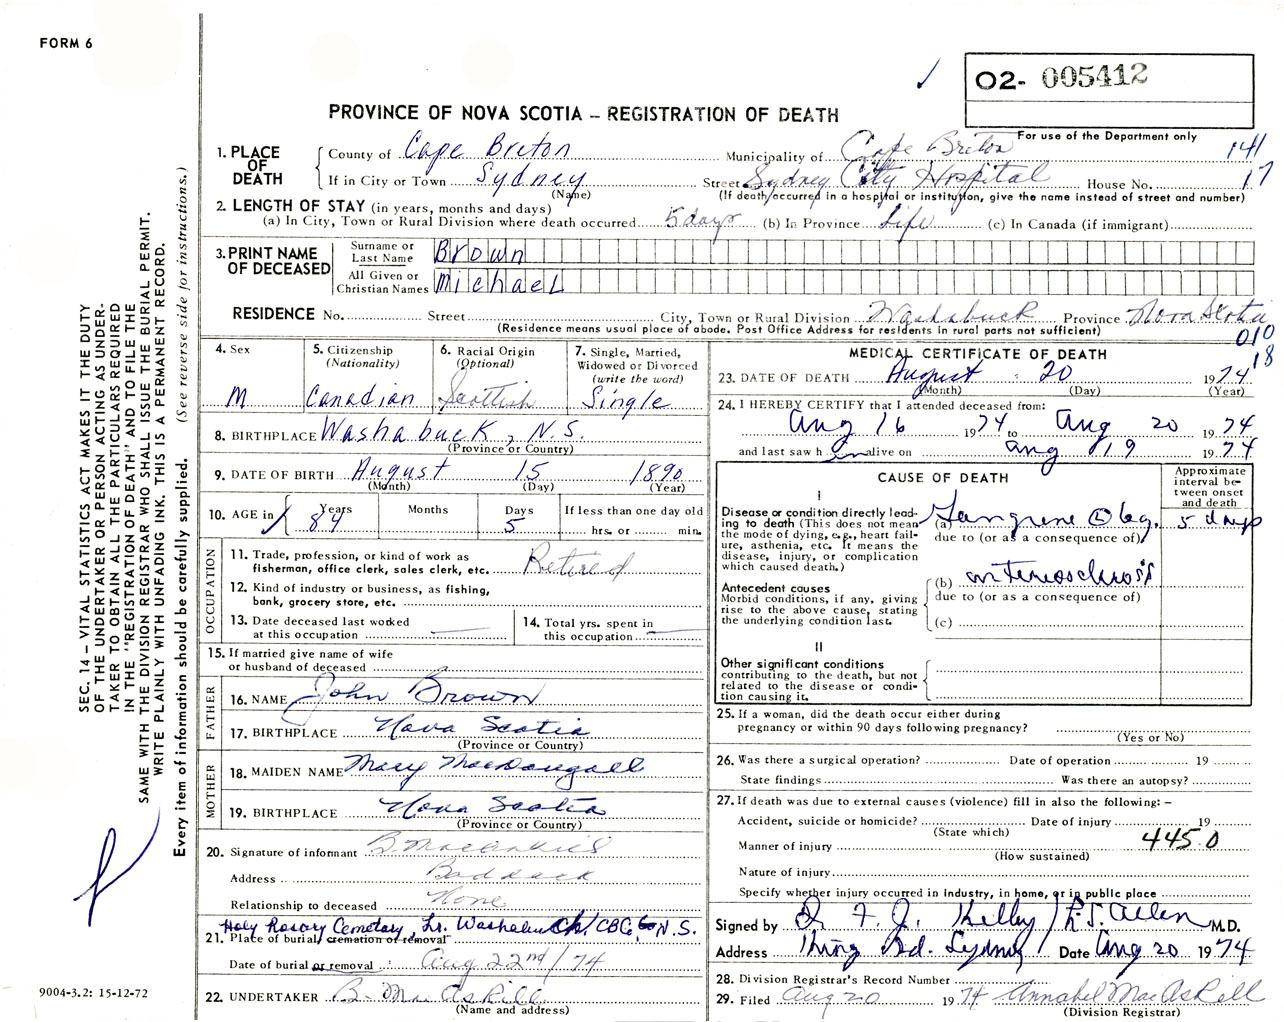 FORM 6
O2- 005412
PROVINCE OF NOVA SCOTIA – REGISTRATION OF DEATH
For use of the Department only
141
17
1. PLACE OF DEATH
County of Cape Breton
Municipality of Cape Breton
If in City or Town Sydney
(Name)
Street Sydney City Hospital House No.
(If death occurred in a hospital or institution, give the name instead of street and number)
2. LENGTH OF STAY (in years, months and days)
(a) In City, Town or Rural Division where death occurred 5 days (b) In Province Life (c) In Canada (if immigrant)
3. PRINT NAME OF DECEASED
Surname or Last Name Brown
All Given or Christian Names Michael
RESIDENCE No. Street City, Town or Rural Division Washabuck Province Nova Scotia
(Residence means usual place of abode. Post Office Address for residents in rural parts not sufficient)
010
18
4. Sex
M
5. Citizenship
(Nationality)
Canadian
6. Racial Origin
(Optional)
Scottish
7. Single, Married,
Widowed or Divorced
(write the word)
Single
8. BIRTHPLACE Washabuck, N.S.
(Province or Country)
9. DATE OF BIRTH August 15 1890
(Month) (Day) (Year)
10. AGE in
Years
84
Months
Days
5
If less than one day old
hrs. or min.
OCCUPATION
11. Trade, profession, or kind of work as
fisherman, office clerk, sales clerk, etc. Retired
12. Kind of industry or business, as fishing,
bank, grocery store, etc.
13. Date deceased last worked
at this occupation
14. Total yrs. spent in
this occupation
15. If married give name of wife
or husband of deceased
FATHER
16. NAME John Brown
17. BIRTHPLACE Nova Scotia
(Province or Country)
MOTHER
18. MAIDEN NAME Mary MacDougall
19. BIRTHPLACE Nova Scotia
(Province or Country)
20. Signature of informant B.
Address Baddeck
Relationship to deceased None
Holy Rosary Cemetary, N.S.
21. Place of burial, cremation or removal
Date of burial or removal : Aug 22nd/74
22. UNDERTAKER B. MacAskill
(Name and address)
MEDICAL CERTIFICATE OF DEATH
23. DATE OF DEATH August 20 1974
(Month) (Day) (Year)
24. I HEREBY CERTIFY that I attended deceased from:
Aug 16 1974 to Aug 20 1974
and last saw him alive on Aug 19 1974
CAUSE OF DEATH
Approximate
interval be-
tween onset
and death
I
Disease or condition directly lead-
ing to death (This does not mean
the mode of dying, e.g., heart fail-
ure, asthenia, etc. It means the
disease, injury, or complication
which caused death.)
(a) Gangrene Ⓛ leg. 5 days
due to (or as a consequence of)
Antecedent causes
Morbid conditions, if any, giving
rise to the above cause, stating
the underlying condition last.
(b) arteriosclerosis
due to (or as a consequence of)
(c)
II
Other significant conditions
contributing to the death, but not
related to the disease or condi-
tion causing it.
25. If a woman, did the death occur either during
pregnancy or within 90 days following pregnancy?
(Yes or No)
26. Was there a surgical operation? Date of operation 19
State findings Was there an autopsy?
27. If death was due to external causes (violence) fill in also the following: –
Accident, suicide or homicide? Date of injury 19
(State which)
445.0
Manner of injury
(How sustained)
Nature of injury
Specify whether injury occurred in industry, in home, or in public place
Signed by Dr F. J. Kelly / M.D.
Address King Rd. Sydney Date Aug 20 1974
28. Division Registrar's Record Number
29. Filed Aug 20 1974 Annabel MacAskill
(Division Registrar)
SEC. 14 – VITAL STATISTICS ACT MAKES IT THE DUTY
OF THE UNDERTAKER OR PERSON ACTING AS UNDER-
TAKER TO OBTAIN ALL THE PARTICULARS REQUIRED
IN THE "REGISTRATION OF DEATH" AND TO FILE THE
SAME WITH THE DIVISION REGISTRAR WHO SHALL ISSUE THE BURIAL PERMIT.
WRITE PLAINLY WITH UNFADING INK. THIS IS A PERMANENT RECORD.
Every item of information should be carefully supplied. (See reverse side for instructions.)
9004-3.2: 15-12-72